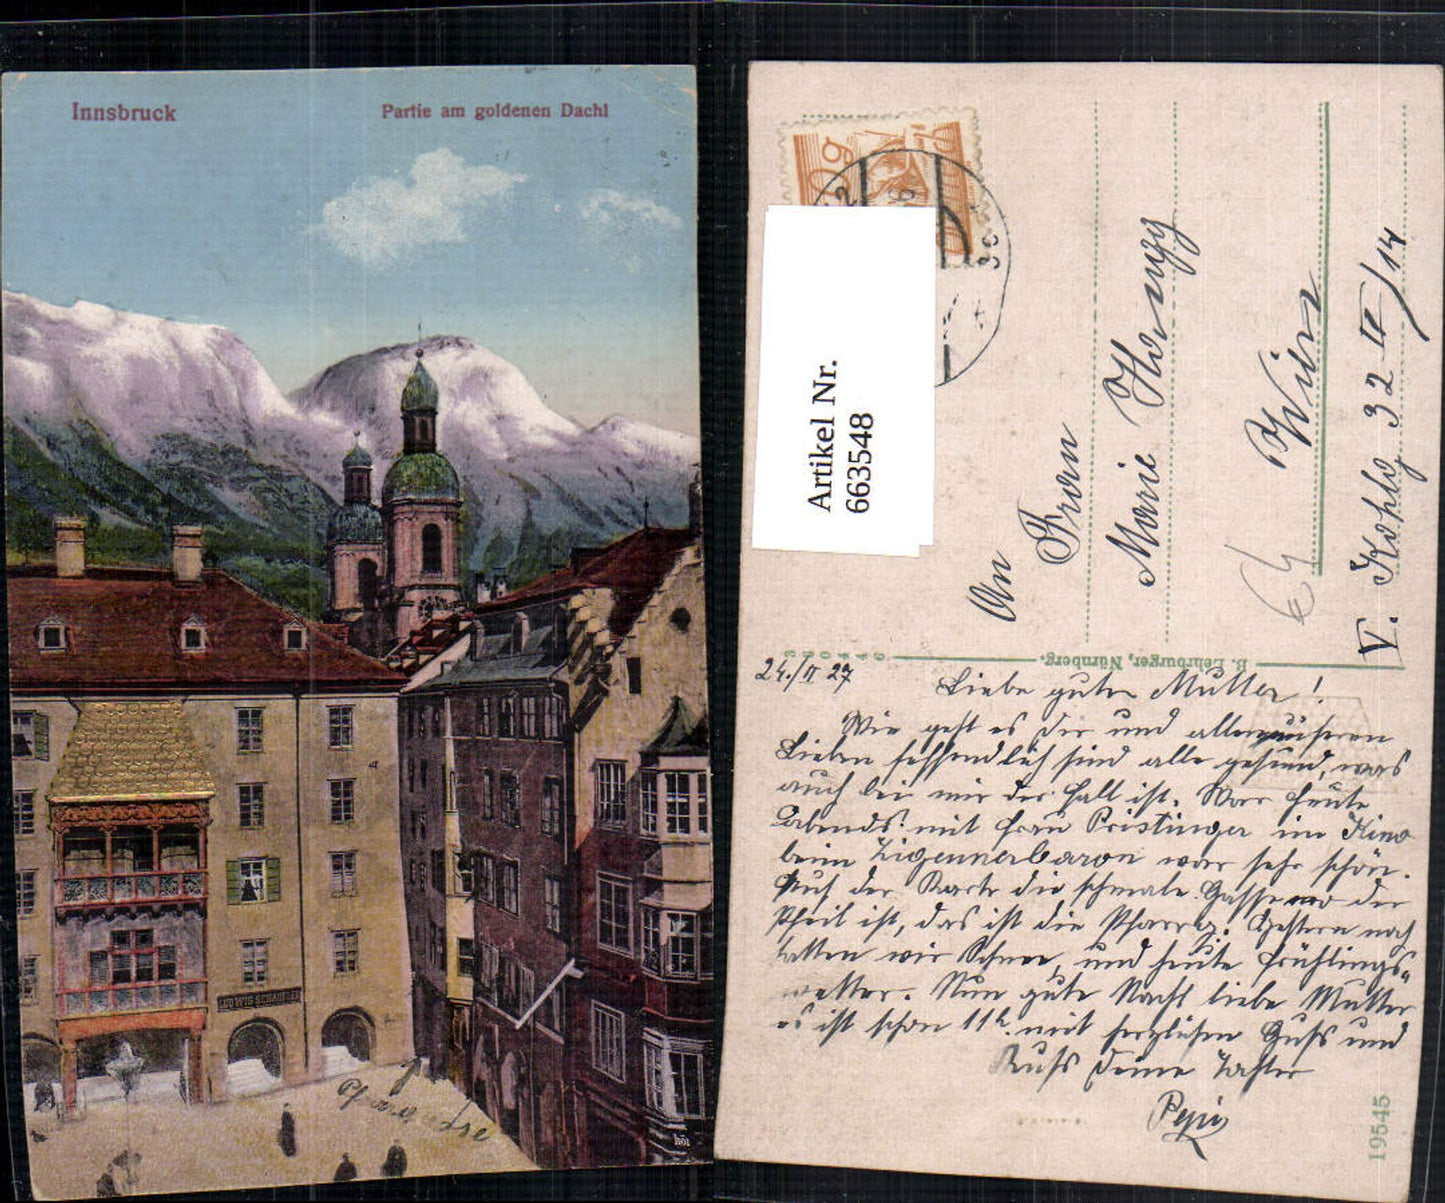 Innsbruck
Partie am goldenen Dachl
LUDWIG SCHAUFLER
Pfarrgasse
Artikel Nr.
663548
An
Frau
Marie
Wien
V. Kohlg. 32 II/14
B. Lehrburger, Nürnberg.
360446
24./II 27
Liebe gute Mutter!
Wie geht es Dir und allen unseren
Lieben hoffendlich sind alle gesund, was
auch bei mir der Fall ist. War heute
Abends mit Frau Pristinger im Kino
beim Zigeunerbaron war sehr schön.
Auf der Karte die schmale Gasse wo der
Pfeil ist, das ist die Pfarrg. Gestern noch
hatten wir Schnee, und heute Frühlings-
wetter. Nun gute Nacht liebe Mutter
es ist schon 11h. mit herzlichen Gruß und
Kuß Deine Tochter
Pepi
19545